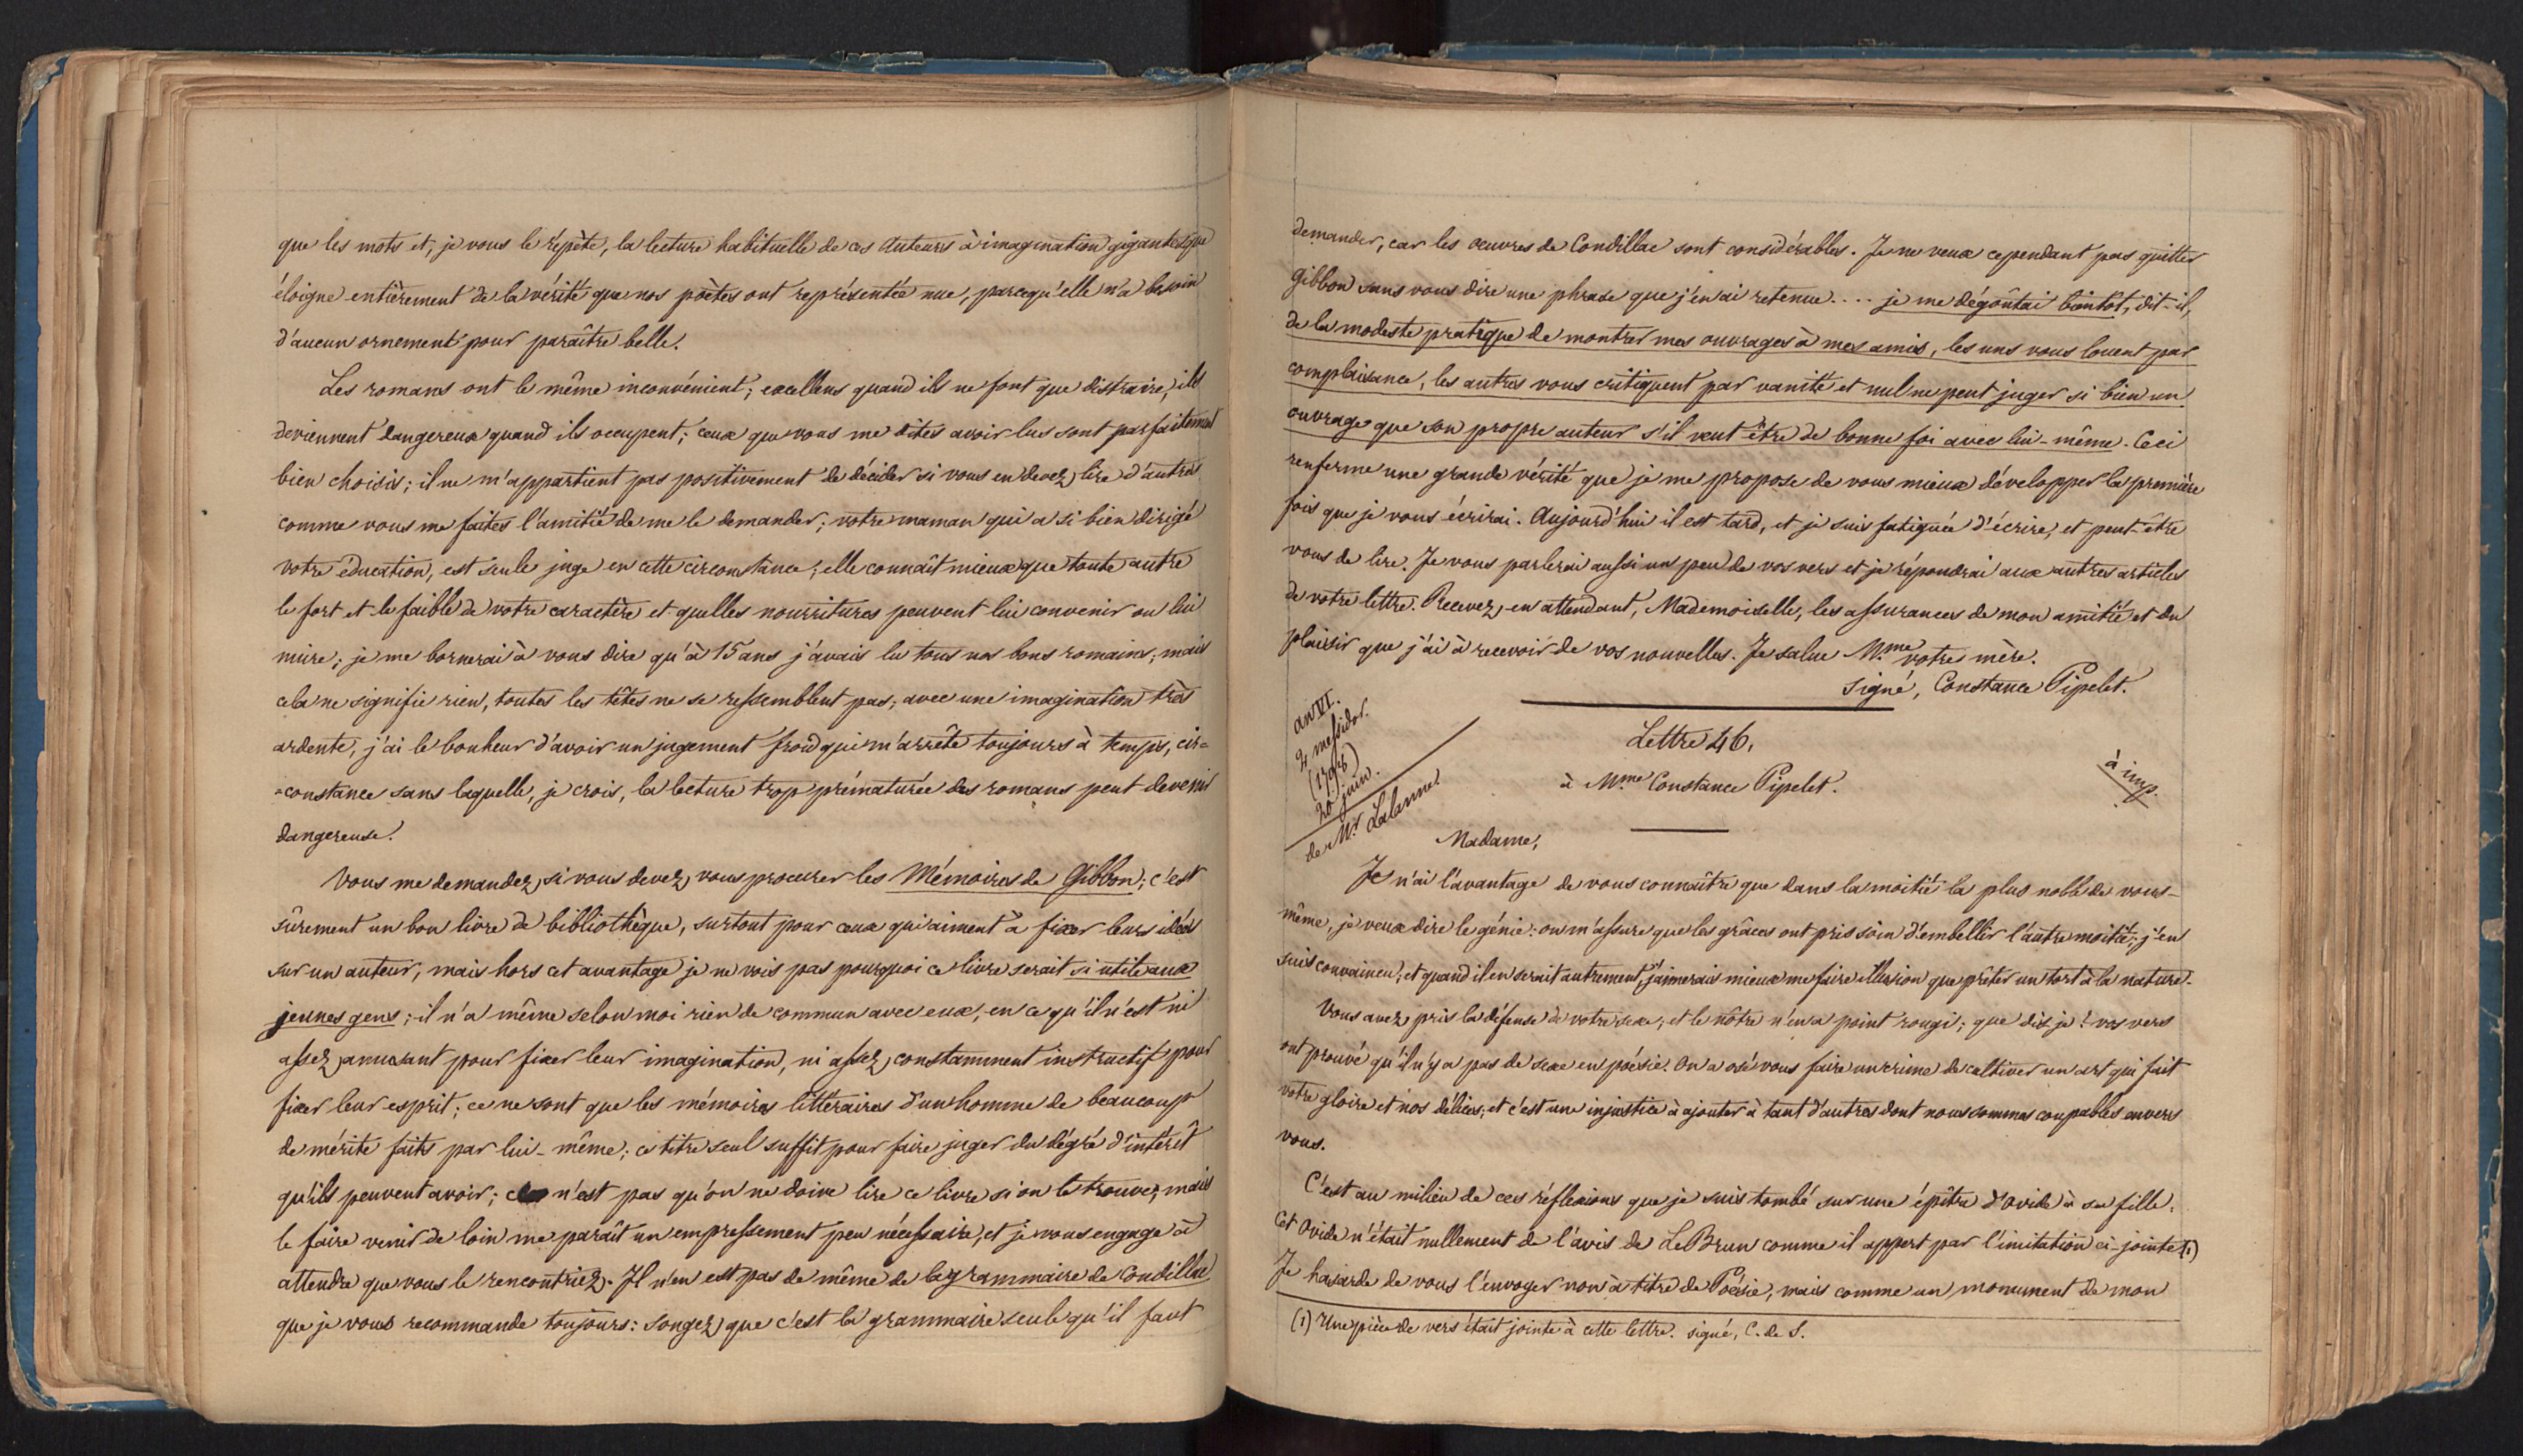 que les mots et, je vous le répète, la lecture habituelle de ces Auteurs à imagination gigantesque
éloigne entièrement de la vérité que nos poètes ont représentée nue, parcequ'elle n'a besoin
d'aucun ornement pour paraître belle.
Les romans ont le même inconvénient; excellens quand ils ne font que distraire, ils
deviennent dangereux quand ils occupent; ceux que vous me dites avoir lus sont parfaitement
bien choisis; il ne m'appartient pas positivement de décider si vous en devez lire d'autres
comme vous me faites l'amitié de me le demander; votre maman qui a si bien dirigé
votre éducation, est seule juge en cette circonstance; elle connaît mieux que toute autre
le fort et le faible de votre caractère et quelles nourritures peuvent lui convenir ou lui
nuire; je me bornerai à vous dire qu'à 15 ans j'avais lu tous nos bons romains; mais
cela ne signifie rien, toutes les têtes ne se ressemblent pas; avec une imagination très
ardente, j'ai le bonheur d'avoir un jugement froid qui m'arrête toujours à temps, cir=
=constance sans laquelle, je crois, la lecture trop prématurée des romans peut devenir
dangereuse.
Vous me demandez, si vous devez vous procurer les Mémoires de Gibbon; c'est
sûrement un bon livre de bibliothèque, surtout pour ceux qui aiment à fixer leurs idées
sur un auteur, mais hors cet avantage je ne vois pas pourquoi ce livre serait si utile aux
jeunes gens; il n'a même selon moi rien de commun avec eux, en ce qu'il n'est ni
assez amusant pour fixer leur imagination, ni assez constamment instructif pour
fixer leur esprit; ce ne sont que les mémoires littéraires d'un homme de beaucoup
de mérite faits par lui-même; ce titre seul suffit pour faire juger du dégré d'intérêt
qu'ils peuvent avoir; ce n'est pas qu'on ne doive lire ce livre si on le trouve, mais
le faire venir de loin me paraît un empressement peu nécessaire, et je vous engage à
attendre que vous le rencontriez. Il n'en est pas de même de la grammaire de Condillac
que je vous recommande toujours: songez que c'est la grammaire seule qu'il faut
demander, car les oeuvres de Condillac sont considérables. Je ne veux cependant pas quitter
Gibbon sans vous dire une phrase que j'en ai retenue.... je me dégoûtai bientôt, dit-il,
de la modeste pratique de montrer mes ouvrages à mes amis, les uns vous louent par
complaisance, les autres vous critiquent par vanité et nul ne peut juger si bien un
ouvrage que son propre auteur s'il veut être de bonne foi avec lui-même. Ceci
renferme une grande vérité que je me propose de vous mieux développer la première
fois que je vous écrirai. Aujourd'hui il est tard, et je suis fatiguée d'écrire, et peut-être
vous de lire. Je vous parlerai aussi un peu de vos vers et je répondrai aux autres articles
de votre lettre. Recevez, en attendant, Mademoiselle, les assurances de mon amitié et du
plaisir que j'ai à recevoir de vos nouvelles. Je salue Mme votre mère.
Signé, Constance Pipelet.
an VI.
2 messidor.
(1798)
20 juin.
de Mr Lalanne
Lettre 46.
à Mme Constance Pipelet.
à imp.
Madame,
Je n'ai l'avantage de vous connaître que dans la moitié la plus noble de vous-
même, je veux dire le génie: on m'assure que les grâces ont pris soin d'embellir l'autre moitié; j'en
suis convaincu; et quand il en serait autrement, j'aimerais mieux me faire illusion que prêter un tort à la nature.
Vous avez pris la défense de votre sexe; et le nôtre n'en a point rougi; que dis je! vos vers
ont prouvé qu'il n'y a pas de sexe en poésie. On a osé vous faire un crime de cultiver un art qui fait
votre gloire et nos délices; et c'est une injustice à ajouter à tant d'autres dont nous sommes coupables envers
vous.
C'est au milieu de ces réflexions que je suis tombé sur une épître d'Ovide à sa fille.
Cet Ovide n'était nullement de l'avis de LeBrun comme il appert par l'imitation ci-jointe (1)
Je hasarde de vous l'envoyer non à titre de Poésie, mais comme un monument de mon
(1) Une pièce de vers était jointe à cette lettre. signé, C. de S.